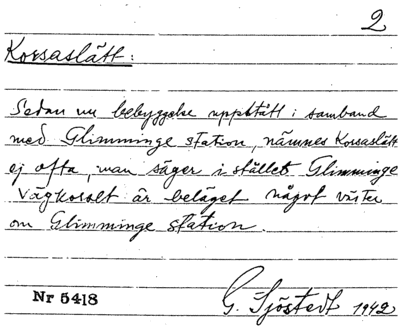 2
Korsaslätt:
Sedan nu bebyggelse uppstått i samband
med Glimminge station, nämnes Korsaslätt
ej ofta, man säger i stället Glimminge
Vägkorset är beläget något väster
om Glimminge station.
Nr 5418
G. Sjöstedt 1942